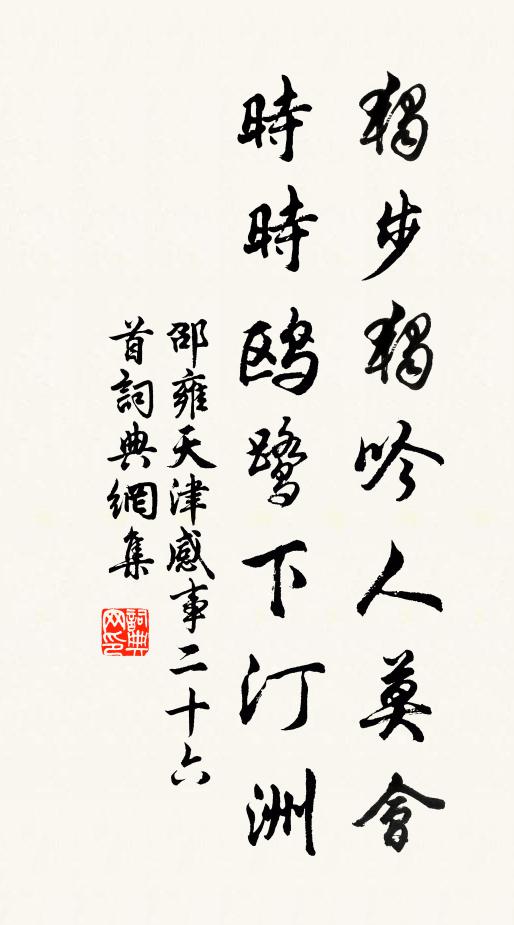 獨步獨吟人莫會
時時鷗鷺下汀洲
邵雍天津感事二十六
首詞典網集
詞典網印